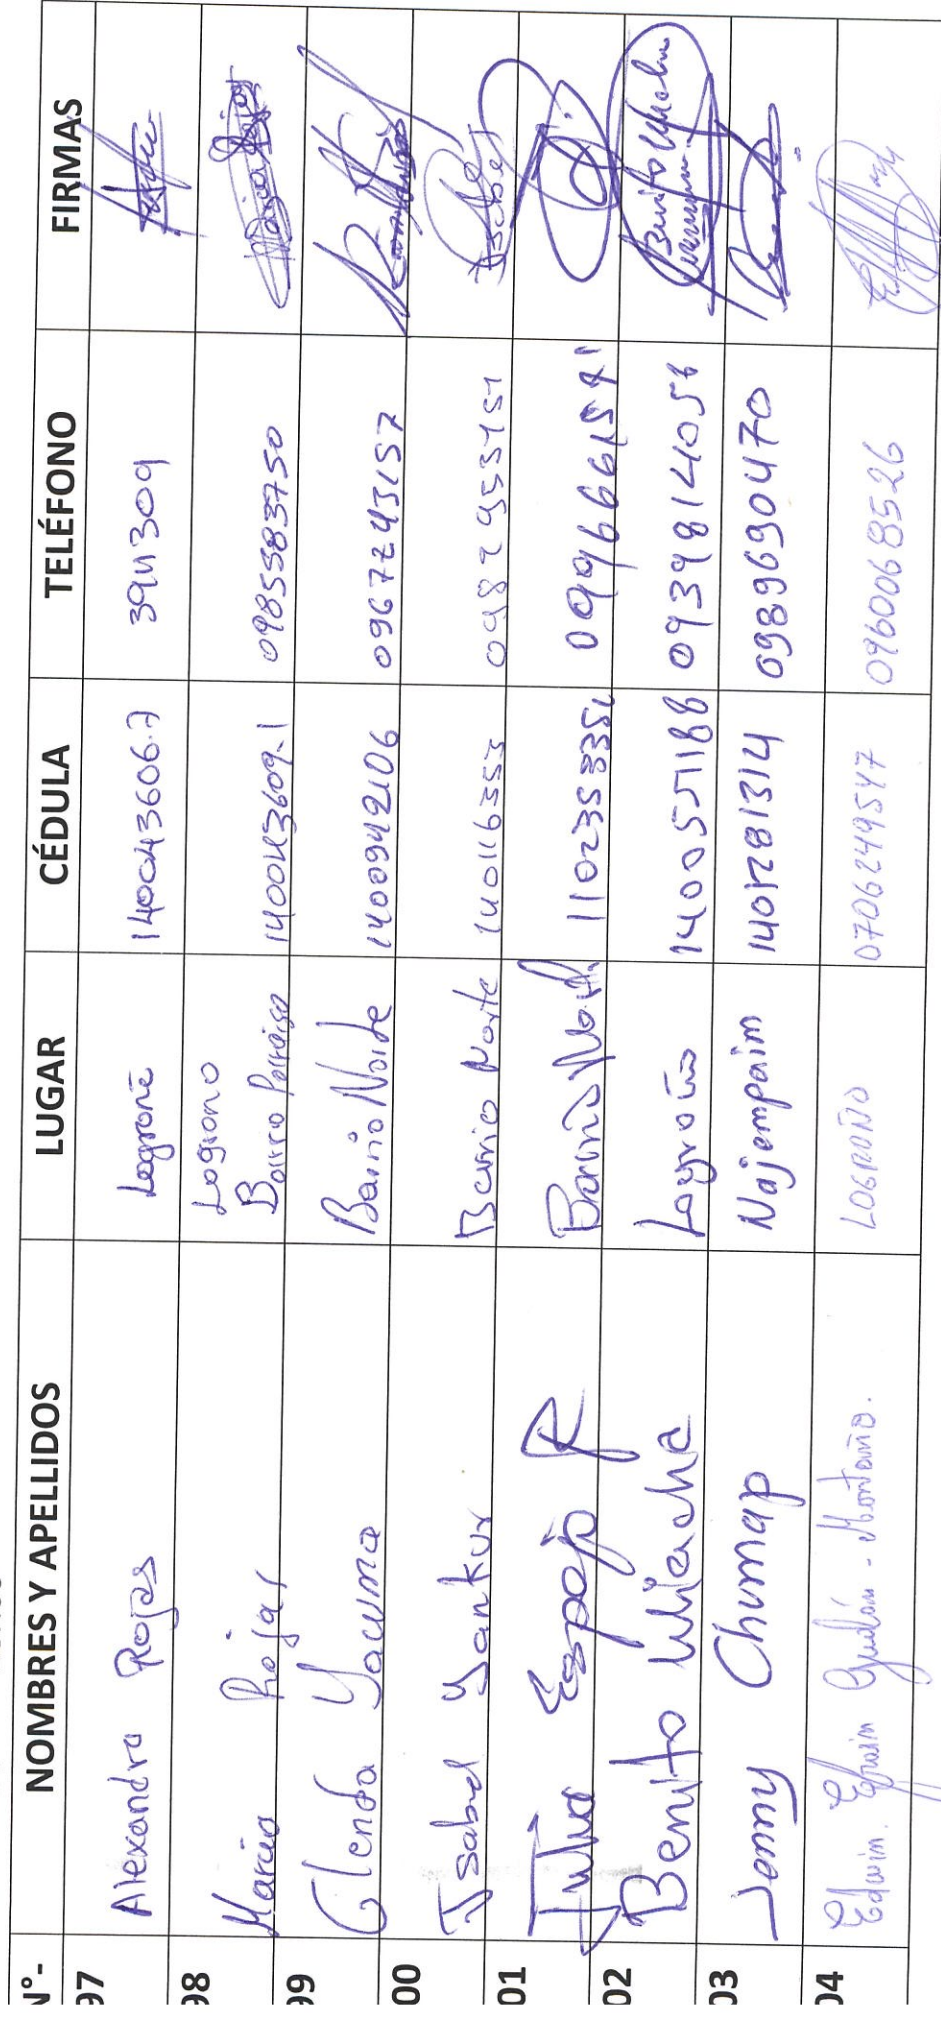 N°- NOMBRES Y APELLIDOS LUGAR CÉDULA TELÉFONO FIRMAS
97 Alexandra Rojas Logroñe 140043606-7 3911309
98 María Rojas Logrono Barrio Parraiso 140043609-1 0985583750
99 Glenda Yacuma Barrio Norte 1400942106 0967243157
00 Isabel Yankur Barrio Norte 140116353 0982953151 Isabel
01 Julia Espejo R Barrio 110235335 0996661591
02 Benito Wiacha Logroño 140055188 0939814056 Benito
03 Jenny Chumap Najempaim 1401281314 0989690470
04 Edwin. Efrain Gualán - Montaño. LOGROÑO 0706249547 0960068526